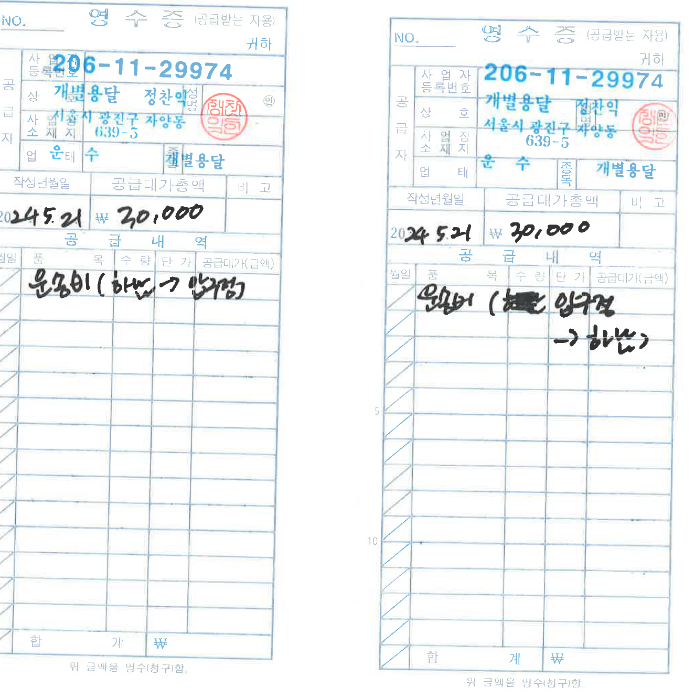 NO.
영 수 증 (공급받는 자용)
귀하
공급자
사업자등록번호 206-11-29974
상 호 개별용달 성명 정찬익 ㊞
사업장소재지 서울시 광진구 자양동
639-5
업 태 운 수 종목 개별용달
작성년월일 공급대가총액 비 고
2024 5.21 ₩ 30,000
공 급 내 역
월일 품 목 수 량 단 가 공급대가(금액)
운송비 (하번 → 압구정)
합 계 ₩
위 금액을 영수(청구)함.
NO.
영 수 증 (공급받는 자용)
귀하
공급자
사업자등록번호 206-11-29974
상 호 개별용달 성명 정찬익 ㊞
사업장소재지 서울시 광진구 자양동
639-5
업 태 운 수 종목 개별용달
작성년월일 공급대가총액 비 고
2024 5.21 ₩ 30,000
공 급 내 역
월일 품 목 수 량 단 가 공급대가(금액)
운송비 ( 압구정
→ 하번)
5
10
합 계 ₩
위 금액을 영수(청구)함